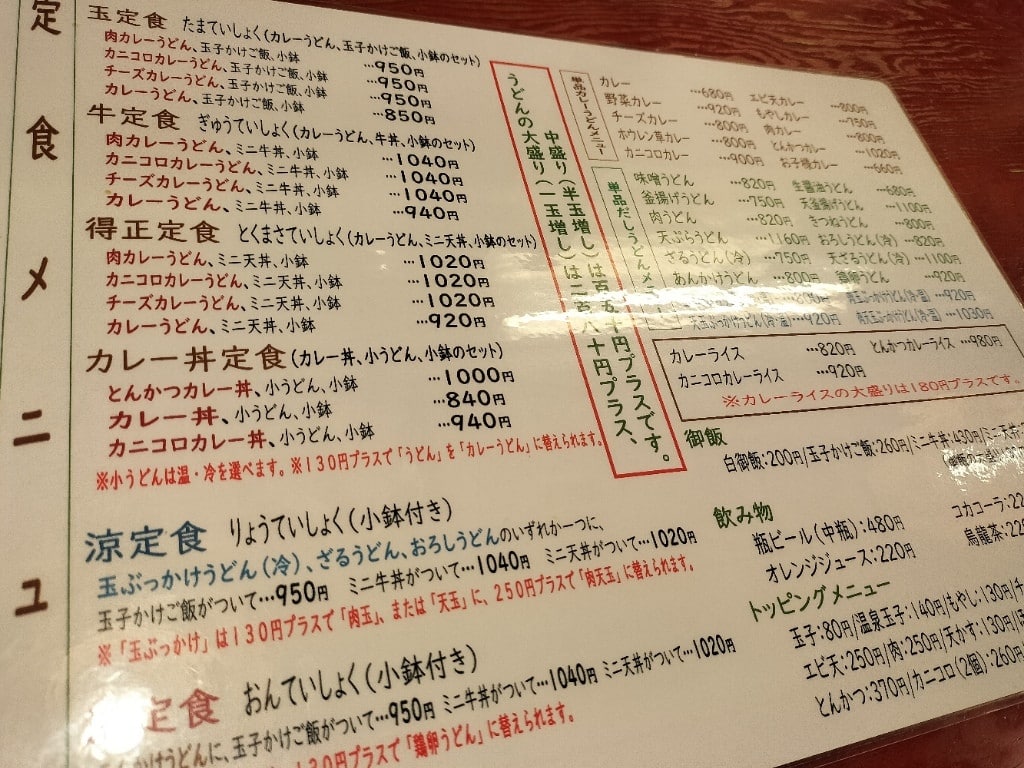 定食メニュ
玉定食 たまていしょく(カレーうどん、玉子かけご飯、小鉢のセット)
肉カレーうどん、玉子かけご飯、小鉢 …950円
カニコロカレーうどん、玉子かけご飯、小鉢 …950円
チーズカレーうどん、玉子かけご飯、小鉢 …950円
カレーうどん、玉子かけご飯、小鉢 …850円
牛定食 ぎゅうていしょく(カレーうどん、牛丼、小鉢のセット)
肉カレーうどん、ミニ牛丼、小鉢 …1040円
カニコロカレーうどん、ミニ牛丼、小鉢 …1040円
チーズカレーうどん、ミニ牛丼、小鉢 …1040円
カレーうどん、ミニ牛丼、小鉢 …940円
得正定食 とくまさていしょく(カレーうどん、ミニ天丼、小鉢のセット)
肉カレーうどん、ミニ天丼、小鉢 …1020円
カニコロカレーうどん、ミニ天丼、小鉢 …1020円
チーズカレーうどん、ミニ天丼、小鉢 …1020円
カレーうどん、ミニ天丼、小鉢 …920円
カレー丼定食(カレー丼、小うどん、小鉢のセット)
とんかつカレー丼、小うどん、小鉢 …1000円
カレー丼、小うどん、小鉢 …840円
カニコロカレー丼、小うどん、小鉢 …940円
※小うどんは温・冷を選べます。※130円プラスで「うどん」を「カレーうどん」に替えられます。
涼定食 りょうていしょく(小鉢付き)
玉ぶっかけうどん(冷)、ざるうどん、おろしうどんのいずれか一つに、
玉子かけご飯がついて…950円 ミニ牛丼がついて…1040円 ミニ天丼がついて…1020円
※「玉ぶっかけ」は130円プラスで「肉玉」、または「天玉」に、250円プラスで「肉天玉」に替えられます。
定食 おんていしょく(小鉢付き)
かけうどんに、玉子かけご飯がついて…950円 ミニ牛丼がついて…1040円 ミニ天丼がついて…1020円
130円プラスで「鶏卵うどん」に替えられます。
中盛り(半玉増し)は百五十円プラスです。
うどんの大盛り(一玉増し)は二百八十円プラス、
単品カレーうどんメニュー
カレー …680円 エビ天カレー …800円
野菜カレー …920円 もやしカレー …750円
チーズカレー …800円 肉カレー …800円
ホウレン草カレー …800円 とんかつカレー …1020円
カニコロカレー …900円 お子様カレー …660円
単品だしうどんメニュー
味噌うどん …820円 生醤油うどん …680円
釜揚げうどん …750円 天釜揚げうどん …1100円
肉うどん …820円 きつねうどん …800円
天ぷらうどん …1160円 おろしうどん(冷) …820円
ざるうどん(冷) …750円 天ざるうどん(冷) …1100円
あんかけうどん …800円 鶏卵うどん …920円
…920円
天玉ぶっかけうどん(冷・温) …920円 …1030円
カレーライス …820円 とんかつカレーライス …980円
カニコロカレーライス …920円
※カレーライスの大盛りは180円プラスです。
御飯
白御飯:200円/玉子かけご飯:260円/ミニ牛丼:430円/ミニ天丼
飲み物
瓶ビール(中瓶):480円 コカコーラ:22
オレンジジュース:220円 烏龍茶:22
トッピングメニュー
玉子:80円/温泉玉子:140円/もやし:130円/チ
エビ天:250円/肉:250円/天かす:130円/
とんかつ:370円/カニコロ(2個):260円